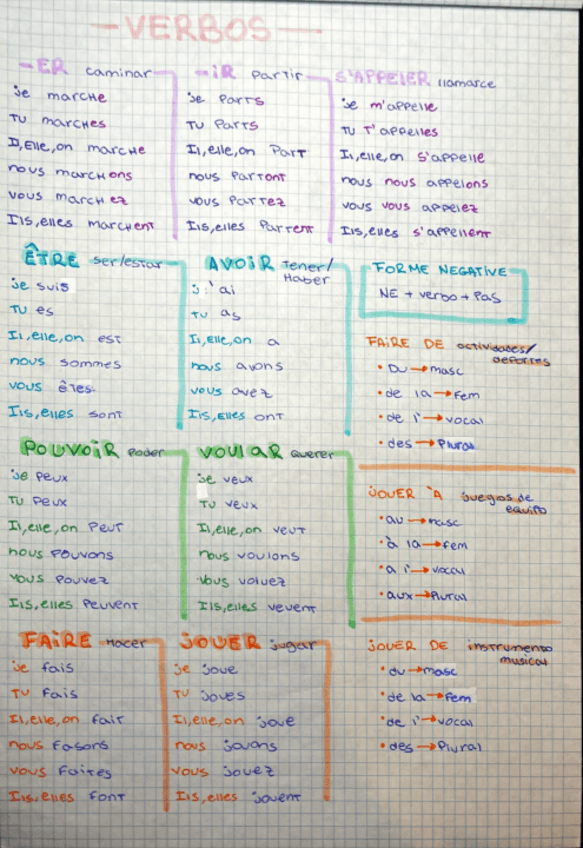 -VERBOS-
-ER caminar
je marche
Tu marches
Il, Elle, on marche
nous marchons
vous marchez
Ils, elles marchent
-iR partir
je Parts
Tu Parts
Il, elle, on Part
nous Partont
vous Partez
Ils, elles Partent
S'APPELER llamarce
je m'appelle
Tu T'appelles
Il, elle, on s'appelle
nous nous appelons
vous vous appelez
Ils, elles s'appellent
ÊTRE ser/estar
je suis
Tu es
Il, elle, on est
nous sommes
vous êtes
Ils, elles sont
AVOIR Tener/
Haber
j'ai
Tu as
Il, Elle, on a
nous avons
vous avez
Ils, Elles ont
FORME NEGATIVE
NE + verbo + Pas
FAIRE DE actividades/
deportes
• Du → masc
• de la → Fem
• de l' → vocal
• des → Plural
POUVOIR Poder
je Peux
Tu Peux
Il, elle, on Peut
nous Pouvons
vous Pouvez
Ils, elles Peuvent
VOULAR Querer
je veux
Tu veux
Il, elle, on veut
nous voulons
vous voluez
Ils, elles vevent
JOUER À juegos de
equipo
• au → masc
• à la → fem
• a l' → vocal
• aux → Plural
FAIRE Hacer
je fais
Tu Fais
Il, elle, on fait
nous Fasons
vous Faites
Ils, elles Font
JOUER jugar
je joue
Tu joues
Il, elle, on joue
nous jouons
vous jouez
Ils, elles jouent
JOUER DE instrumento
musical
• du → masc
• de la → Fem
• de l' → vocal
• des → Plural